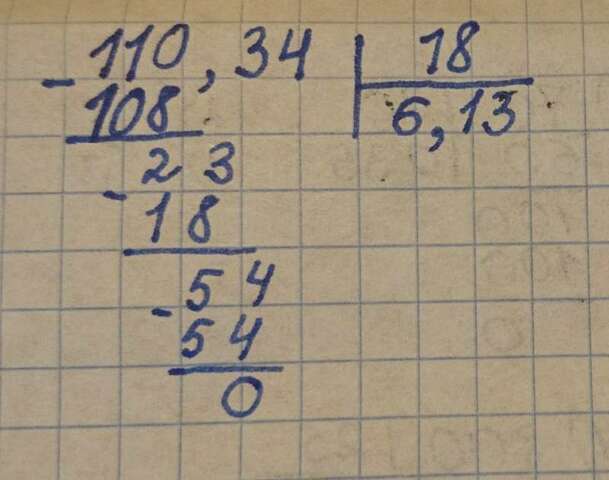 -110,34 | 18
108 6,13
23
-18
54
-54
0